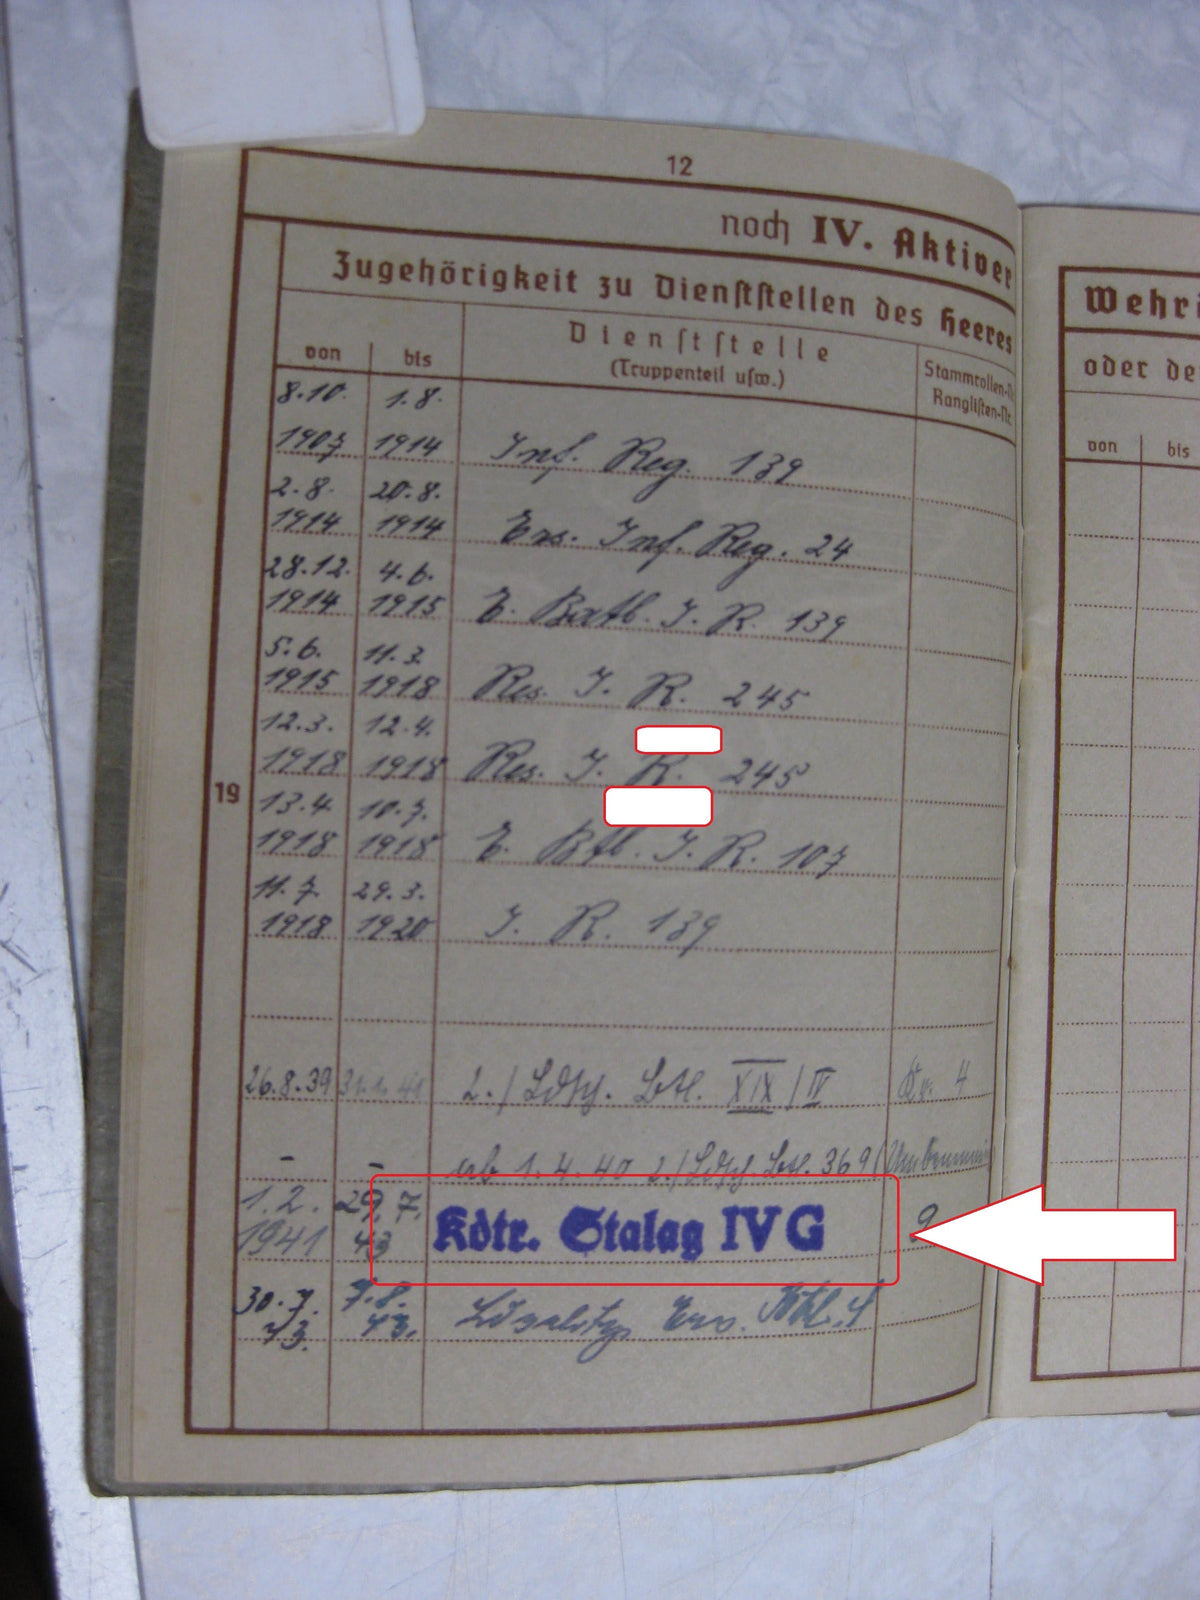 12
noch IV. Aktiver
Zugehörigkeit zu Dienststellen des Heeres
von bis Dienststelle
(Truppenteil usw.)
Stammrollen-Nr.
Ranglisten-Nr.
8.10. 1.8.
1907 1914 Inf. Reg. 139
2.8. 20.8.
1914 1914 Ers. Inf. Reg. 24
28.12. 4.6.
1914 1915 E. Batl. I. R. 139
5.6. 11.3.
1915 1918 Res. I. R. 245
12.3. 12.4.
1918 1918 Res. I. R. 245
19
13.4. 10.7.
1918 1918 E. Btl. I. R. 107
11.7. 29.3.
1918 1920 I. R. 139
26.8.39 31.1.41 2./Ldsch. Btl. XIX/IV Kr. 4
- - ab 1.4.40 2./Ldsch. Btl. 369
1.2. 29.7.
1941 43 Kdtr. Stalag IV G 9
30.7. 7.8.
43. 43. Ers. Btl. 4
Wehr
oder de
von bis